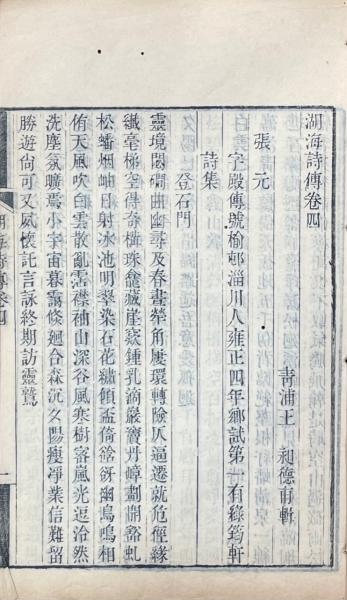 湖海詩傳卷四
青浦王 昶德甫輯
張元
字殿傳號榆邨淄川人雍正四年鄉試第一有綠筠軒
詩集
登石門
靈境閟磵曲幽尋及春晝犖角屢環轉險仄逼遷就危徑緣
纖毫梯空得奇構珠龕藏崖竅鍾乳滴巖竇丹嶂劃開豁虬
松蟠烟岫日射冰池明翠染石花繡傾盃倚谽谺幽鳥鳴相
侑天風吹白雲散亂霑襟袖山深谷風寒樹密嵐光逗泠然
洗塵氛曠焉小宇宙暮靄倏廻合森沉夕陽瘦淨業信難留
勝遊尙可又夙懷託言詠終期訪靈鷲